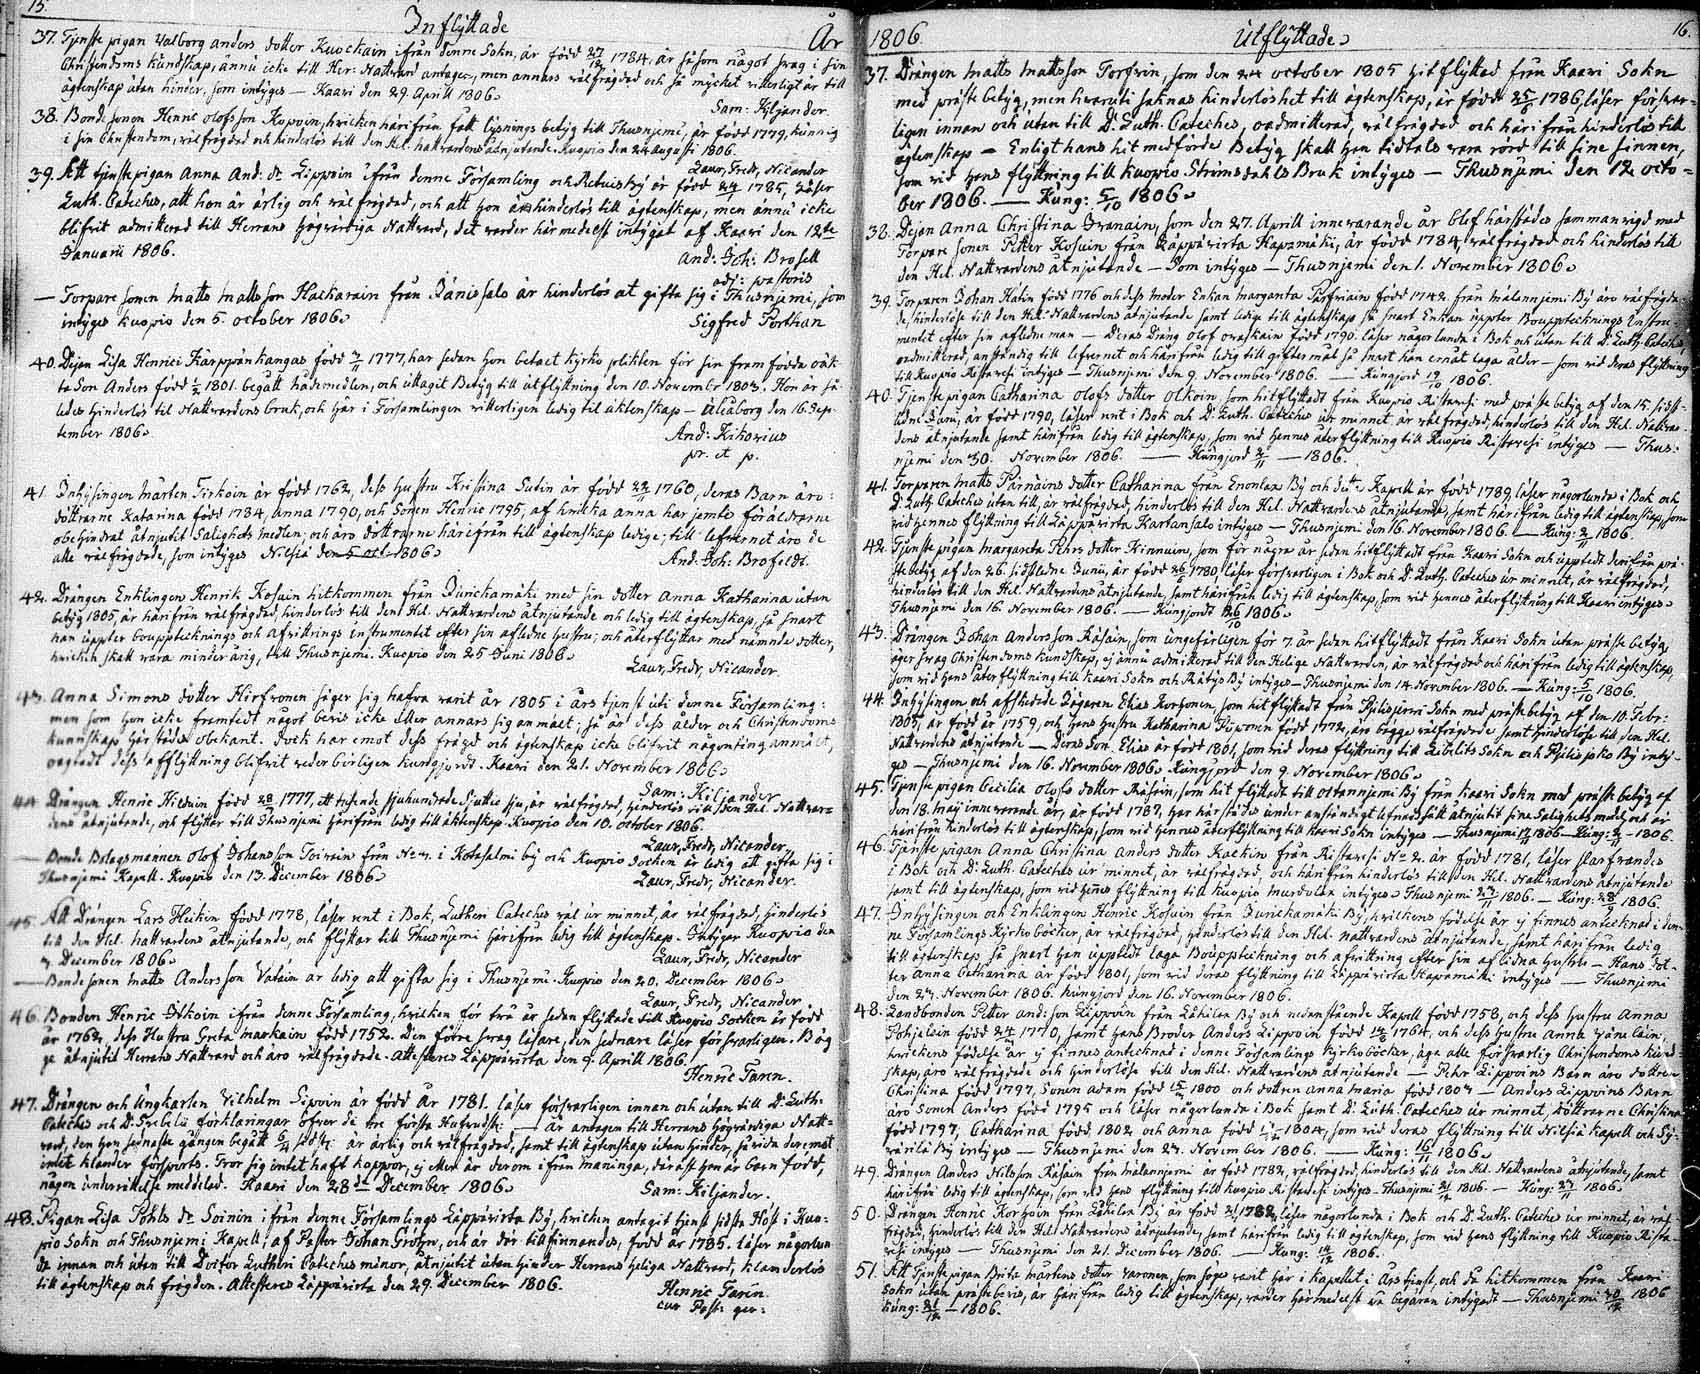 15.
Inflyttade
År
37. Tjenste pigan Valborg anders dotter Kuockain ifrån denne Sokn, är född 27/12 1784, är såsom något svag i sin
Christendoms kundskap, ännu icke till Her: Nattvard antagen, men annars välfrägdad och så mycket vitterligt är till
ägtenskap utan hinder, som intyges — Kaavi den 29. Aprill 1806.
Sam: Kiljander.
38. Bonde sonen Henric olofsson Kopoin, hvicken härifrån fått lysnings betyg till Thusnjemi, är född 1779, kunnig
i sin Christendom, välfrägdad och hinderlös till den Hel. nattvardens åtnjutande. Kuopio den 24 augusti 1806.
Laur, Fredr, Nicander
39. Att tjenstepigan Anna And: dr Lippoin ifrån denne Församling och By är född 24/ 1785, Läser
Luth. Cateches, att hon är ärlig och välfrägdad, och att hon är hinderlös till ägtenskap, men ännu icke
blifvit admitterad till Herrans högvärdiga Nattvard, det varder härmedelst intygat af Kaavi den 12te
Januarii 1806.
And: Joh: Brofelt
adj: pastoris
— Torpare sonen Matts Mattsson Hackarain från Jänissalo är hinderlös at gifta sig i Thusnjemi, som
intyges Kuopio den 5. october 1806.
Sigfred Porthan
40. Dejan Lisa Henrici Kärppänkangas född 7/11 1777, har sedan hon betaet kyrko plikten för sin framfödda oäk-
ta Son Anders född 1/2 1801. begått nådemedlen, och uttagit Betyg till utflyttning den 10. November 1803. Hon är så-
ledes hinderlös til Nattvardens bruk, och här i Församlingen vitterligen ledig til äktenskap — Uleåborg den 16. Sep-
tember 1806.
And:
pr. et p.
41. Inhysingen Mårten Tirkoin är född 1762, dess hustru Kristina Sutin är född 22/11 1760, deras Barn äro:
döttrarne Katarina född 1784, Anna 1790, och Sonen Henric 1795, af hvilka anna har jemte föräldrarne
obehindrat åtnjutit Salighets medlen; och äro döttrarne härifrån till ägtenskap ledige; till lefvernet äro de
alle välfrägdade, som intyges Nilsiä den 5. oct. 1806.
And: Joh: Brofeldt.
42. Drängen Enklingen Henrik Kosuin hitkommen från Junickamäki med sin dotter Anna Katharina utan
betyg 1805, är härifrån välfrägdad, hinderlös till den Hel. Nattvardens åtnjutande och ledig till ägtenskap, så snart
han uppter bouppteckninge och afvittrings instrumentet efter sin aflidne hustru; och återflyttar med nämnde dotter,
hvicken skall vara minderårig, till Thusnjemi. Kuopio den 25 Juni 1806.
Laur, Fredr, Nicander
43. Anna Simons dotter Hirfvonen säger sig hafva varit år 1805 i års tjenst uti denne Församling:
men som hon icke framtedt något bevis icke eller annars sig anmält: så är dess ålder och Christendoms
kunnskap härstädes obekant. Dock har emot dess frägd och ägtenskap icke blifvit någonting anmält,
oagtadt dess afflyttning blifvit vederbörligen kungjord. Kaavi den 21. November 1806.
Sam: Kiljander
44. Drängen Henric Hilduin född 28/ 1777, ett tusende sjuhundrade sjuttio sju, är välfrägdad, hinderlös till den Hel. Nattvar-
dens åtnjutande, och flyttar till Thusnjemi härifrån ledig till äktenskap. Kuopio den 10. october 1806.
Laur, Fredr, Nicander
— Bonde Bolagsmannen olof Johansson Toivain från No 7. i Kotasalmi by och Kuopio Socken är ledig att gifta sig i
Thusnjemi Kapell. Kuopio den 13. December 1806.
Laur, Fredr, Nicander.
45. Att Drängen Lars Heikin född 1778, läser rent i Bok, Lutheri Cateches väl ur minnet, är välfrägdad, hinderlös
till den Hel. nattvardens åtnjutande, och flyttar till Thusnjemi härifrån ledig till ägtenskap. Intygar Kuopio den
7. December 1806.
Laur, Fredr, Nicander
— Bonde sonen Matts Andersson Vatain är ledig att gifta sig i Thusnjemi. Kuopio den 20. December 1806.
Laur, Fredr, Nicander
46. Bonden Henric Ockoin ifrån denne Församling, hvilken för två år sedan flyttade till Kuopio Socken är född
år 1762, dess Hustru Greta Markain född 1752. Den förre svag läsare, den sednare läser försvarligen. Båg-
ge åtnjutit Herrans Nattvard och äro välfrägdade. Attesteres Läppävirta den 7. Aprill 1806.
Henric Faren.
47. Drängen och Ungkarlen Vilhelm Sipoin är född år 1781. läser försvarligen innan och utan till Dr. Luth:
Cateches och D. Svebelii förklaringar öfver de tre första Hufvudst: — är antagen till Herrans högvärdiga Natt-
vard, den han sednaste gången begått 6/4 sidst. är ärlig och välfrägdad, samt till ägtenskap utan hinder, så vida deremot
intet klander försports. Tror sig intet haft koppor, ej eller är derom ifrån Maninga, derest han är barn född,
någon underrättelse meddelad. Kaavi den 28de December 1806.
Sam: Kiljander.
48. Pigan Lisa Påhls dr Soinin ifrån denne Församlings Läppävirta By, hvicken antagit tjenst sidsta Höst i Kuo-
pio Sokn och Thusnjemi Kapell, af Pastor Johan Grohn, och är der tillfinnandes, född år 1785. läser någorlun-
da innan och utan till Doctor Lutheri Cateches minor, åtnjutit utan hinder Herrans heliga Nattvard, klanderlös
till ägtenskap och frägden. Attesteres Läppävirta den 29. December 1806.
Henric Faren.
cur Past: ger:
1806.
Utflyttade
16.
37. Drängen Matts Mattsson Torfvin, som den 24 october 1805 hitflyttad från Kaavi Sokn
med präste betyg, men hvaruti saknas hinderlöshet till ägtenskap, är född 25/ 1786, läser försvar-
ligen innan och utan till D. Luth. Cateches, oadmitterad, välfrägdad och härifrån hinderlös till
ägtenskap — Enligt hans hit medförde Betyg skall han tidtals vara rörd till sine sinnen,
som vid hans flyttning till Kuopio Strömsdahls Bruk intyges — Thusnjemi den 12 octo-
ber 1806. — Kung: 5/10 1806.
38. Dejan Anna Christina Granain, som den 27. Aprill innevarande år blef härstädes sammanvigd med
Torpare sonen Petter Kosuin från Läppävirta Hapamäki, är född 1784, välfrägdad och hinderlös till
den Hel. Nattvardens åtnjutande — Som intyges — Thusnjemi den 1. November 1806.
39. Torparen Johan Hakin född 1776 och dess moder Enkan Margareta Parfviain född 1742 från Mälannjemi By äro välfrägda-
de, hinderlöse till den Hel. Nattvardens åtnjutande samt ledige till ägtenskap så snart Enkan uppter Bouppteckninge Instru-
mentet efter sin aflidne man — Deras Dräng Olof ovaskain född 1790. läser någorlunda i Bok och utan till D. Luth. Cateches,
oadmitterad, anständig till lefvernet och härifrån ledig till giftermål så snart han ernåt laga ålder — som vid deras flyttning
till Kuopio Ristavesi intyges — Thusnjemi den 9. November 1806. — Kungjord 19/10 1806.
40. Tjenste pigan Catharina olofs dotter olkoin, som hitflyttadt från Kuopio Ristavesi med präste betyg af den 15. sidst-
ledne Juni, är född 1790, läser rent i Bok och D. Luth. Cateches ur minnet, är välfrägdad, hinderlös till den Hel. Nattvar-
dens åtnjutande samt härifrån ledig till ägtenskap, som vid hennes återflyttning till Kuopio Ristavesi intyges — Thus-
njemi den 30. November 1806. — Kungjord 2/11 — 1806.
41. Torparen Matts Pirnäins dotter Catharina från Enonlax By och detta Kapell är född 1789, läser någorlunda i Bok och
D. Luth. Cateches utan till, är välfrägdad, hinderlös till den Hel. Nattvardens åtnjutande, samt härifrån ledig till ägtenskap, som
vid hennes flyttning till Läppävirta Karkansalo intyges — Thusnjemi den 16. November 1806. — Kung: 2/11 1806.
42. Tjenste pigan Margareta Pehrs dotter Kinnuin, som för några år sedan hitflyttadt från Kaavi Sokn och upptedt derifrån prä-
stebetyg af den 26. sidstledne Junii, är född 26/5 1780, läser försvarligen i Bok och D. Luth. Cateches ur minnet, är välfrägdad,
hinderlös till den Hel. Nattvardens åtnjutande, samt härifrån ledig till ägtenskap, som vid hennes återflyttning till Kaavi intyges.
Thusnjemi den 16. November 1806. — Kungjordt 26/10 1806.
43. Drängen Johan Andersson Räsäin, som ungefärligen för 7. år sedan hitflyttadt från Kaavi Sokn utan präste betyg,
äger svag Christendoms kundskap, ej ännu admitterad till den Helige Nattvarden, är välfrägdad och härifrån ledig till ägtenskap,
som vid hans återflyttning till Kaavi Sokn och Rätys By intyges — Thusnjemi den 14 November 1806. — Kung: 5/10 1806.
44. Inhysingen och afskedade Jägaren Elias Korhonen, som hit flyttadt från Pjelisjervi Sokn med prästebetyg af den 10. Febr:
1805, är född år 1759, och hans hustru Katharina Piiponen född 1772, äro bägge välfrägdade samt hinderlöse till den Hel.
Nattvardens åtnjutande — Deras Son Elias är född 1801, som vid deras flyttning till Libelits Sokn och By inty-
ges — Thusnjemi den 16. November 1806. Kungjord den 9. November 1806.
45. Tjenste pigan Cecilia olofs dotter Räsäin, som hit flyttadt till oltannjemi By från Kaavi Sokn med präste betyg af
den 18. Maji innevarande år, är född 1787, har härstädes under anständigt lefnadssätt åtnjutit sine Salighets medel och är
härifrån hinderlös till ägtenskap, som vid hennes återflyttning till Kaavi Sokn intyges — Thusnjemi 17/11 1806 — Kung: 2/11 — 1806.
46. Tjenste pigan Anna Christina anders dotter Kackin från Ristavesi No 2. är född 1781, läser
i Bok och D: Luth. Cateches ur minnet, är välfrägdad, och härifrån hinderlös till den Hel. Nattvardens åtnjutande
samt till ägtenskap, som vid hennes flyttning till Kuopio Murdulax intyges Thusnjemi 27/11 1806. — Kung: 28/ 1806.
47. Inhysingen och Enklingen Henric Kosuin från Junickamäki By, hvickens födelse år ej finnes antecknad i den-
ne Församlings Kyrkoböcker, är välfrägdad, hinderlös till den Hel. nattvardens åtnjutande, samt härifrån ledig
till ägtenskap, så snart han upptedt laga Bouppteckning och afvittning efter sin aflidna hustru — Hans Dot-
ter Anna Catharina är född 1801, som vid deras flyttning till Läppävirta Hapamäki intyges — Thusnjemi
den 23. November 1806. Kungjord den 16. November 1806.
48. Landbonden Petter And: son Lippoin från Lähilax By och nedanstående Kapell född 1758, och dess hustru Anna
Pohjalain född 24/ 1770, samt hans Broder Anders Lippoin född 14/ 1764, och dess hustru Anna Vänäläin,
hvickens födelse år ej finnes antecknad i denne Församlings Kyrkoböcker, äga alle försvarlig Christendoms kund-
skap, äro välfrägdade och hinderlöse till den Hel. Nattvardens åtnjutande — Pehr Lippoins Barn äro dottren
Christina född 1797, Sonen Adam född 15/ 1800 och dottren Anna Maria född 1803 — Anders Lippoins Barn
äro Sonen Anders född 1795 och läser någorlunda i Bok samt D. Luth. Cateches ur minnet, döttrarne Christina
född 1797, Catharina född 1802 och Anna född 1804, som vid deras flyttning till Nilsiä Kapell och Sy-
värilä By intyges — Thusnjemi den 23. November 1806. — Kung: 16/11 1806.
49. Drängen Anders Nilsson Räsäin från Mälannjemi är född 1782, välfrägdad, hinderlös till den Hel. Nattvardens åtnjutande, samt
härifrån ledig till ägtenskap, som vid hans flyttning till Kuopio Ristavesi intyges. Thusnjemi 21/12 1806 — Kung: 27/11 1806.
50. Drängen Henric Korhoin från Lähilax By är född 1782, läser någorlunda i Bok och D. Luth. Cateches ur minnet, är väl-
frägdad, hinderlös till den Hel. Nattvardens åtnjutande, samt härifrån ledig till ägtenskap, som vid hans flyttning till Kuopio Rista-
vesi intyges — Thusnjemi den 21. December 1806. — Kung: 14/12 1806.
51. Att Tjenste pigan Brita Mårtens dotter Varonen, som säges varit här i Kapellet i Års tjenst, och då hitkommen från Kaavi
Sokn utan prästebevis, är härifrån ledig till ägtenskap, varder härmedelst på begäran intygadt — Thusnjemi 30/12 1806
Kung: 21/12 — 1806.